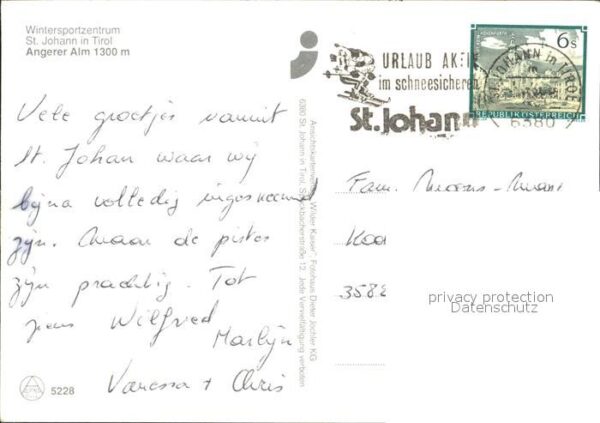 Wintersportzentrum
St. Johann in Tirol
Angerer Alm 1300 m
Vele groetjes vanuit
St. Johan waar wij
bijna volledig ingesneeuwd
zijn. Maar de pistes
zijn prachtig. Tot
ziens Wilfred
Marlijn
Vanessa + Chris
5228
Ansichtskartenverlag "Wilder Kaiser", Fotohaus Dieter Jöchler KG
6380 St. Johann in Tirol, Speckbacherstraße 12. Jede Vervielfältigung verboten
URLAUB AKTIV
im schneesicheren
St. Johann
ST. JOHANN in TIROL
6380
6 S
REPUBLIK ÖSTERREICH
Fam.
3582
privacy protection
Datenschutz